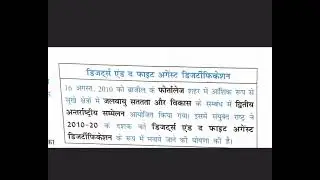 डिजर्ट्स एंड द फाइट अगेंस्ट डिजर्टीफिकेशन
16 अगस्त, 2010 को ब्राजील के फोर्तालेज शहर में आंशिक रूप से
सूखे क्षेत्रों में जलवायु सततता और विकास के सम्बंध में द्वितीय
अन्तर्राष्ट्रीय सम्मेलन आयोजित किया गया। इसमें संयुक्त राष्ट्र ने
2010-20 के दशक को डिजर्ट्स एंड द फाइट अगेंस्ट
डिजर्टीफिकेशन के रूप में मनाये जाने की घोषणा की है।